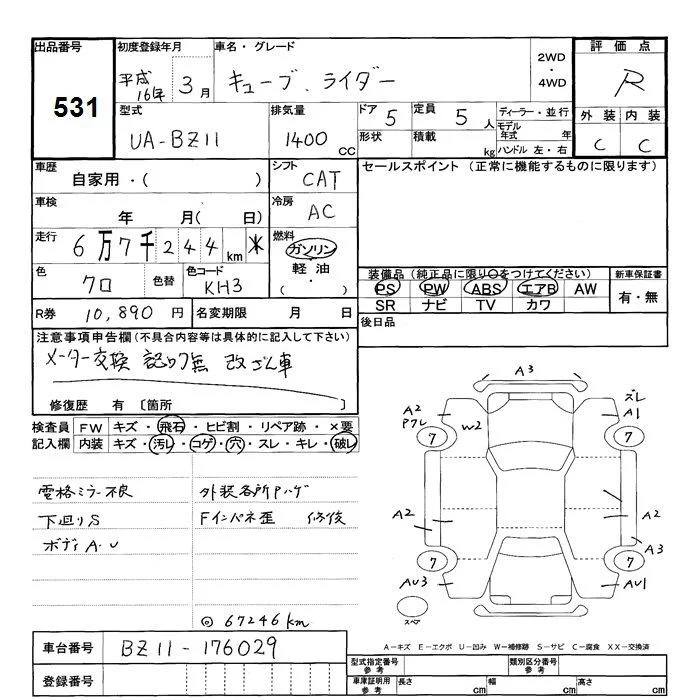 出品番号 初度登録年月 車名・グレード 2WD ・ 4WD 評価点
531 平成16年 3月 キューブ . ライダー R
型式 排気量 ドア 5 定員 5人 ディーラー・並行 外装 内装
UA-BZ11 1400 cc 形状 積載 kg モデル年式 年 C C
ハンドル 左・右
車歴 自家用・( ) シフト CAT セールスポイント (正常に機能するものに限ります)
車検 年 月( 日) 冷房 AC
走行 6万7千244km ✳ 燃料 ガソリン
軽油
( ・ )
色 クロ 色替 色コード KH3
装備品(純正品に限り○をつけてください) 新車保証書
PS PW ABS エアB AW 有・無
SR ナビ TV カワ
R券 10,890円 名変期限 月 日 後日品
注意事項申告欄(不具合内容等は具体的に記入して下さい)
メーター交換 認める無 改ざん車
修復歴 有 〔箇所 〕
検査員 FW キズ・飛石・ヒビ割・リペア跡・×要
記入欄 内装 キズ・汚レ・コゲ・穴・スレ・キレ・破レ
電格ミラー不良 外装各所Pハゲ
下廻りS Fインパネ歪 修復
ボディA.U
◎67246km
A3
A2 Pワレ W2 ズレ A1
7 7
A2 A2
A3
7 7
AU3 AU1
スペア
A-キズ E-エクボ U-凹み W-補修跡 S-サビ C-腐食 XX-交換済
車台番号 BZ11-176029
型式指定番号 参考 類別区分番号 参考
登録番号
車庫証明用 参考 長さ cm 幅 cm 高さ cm